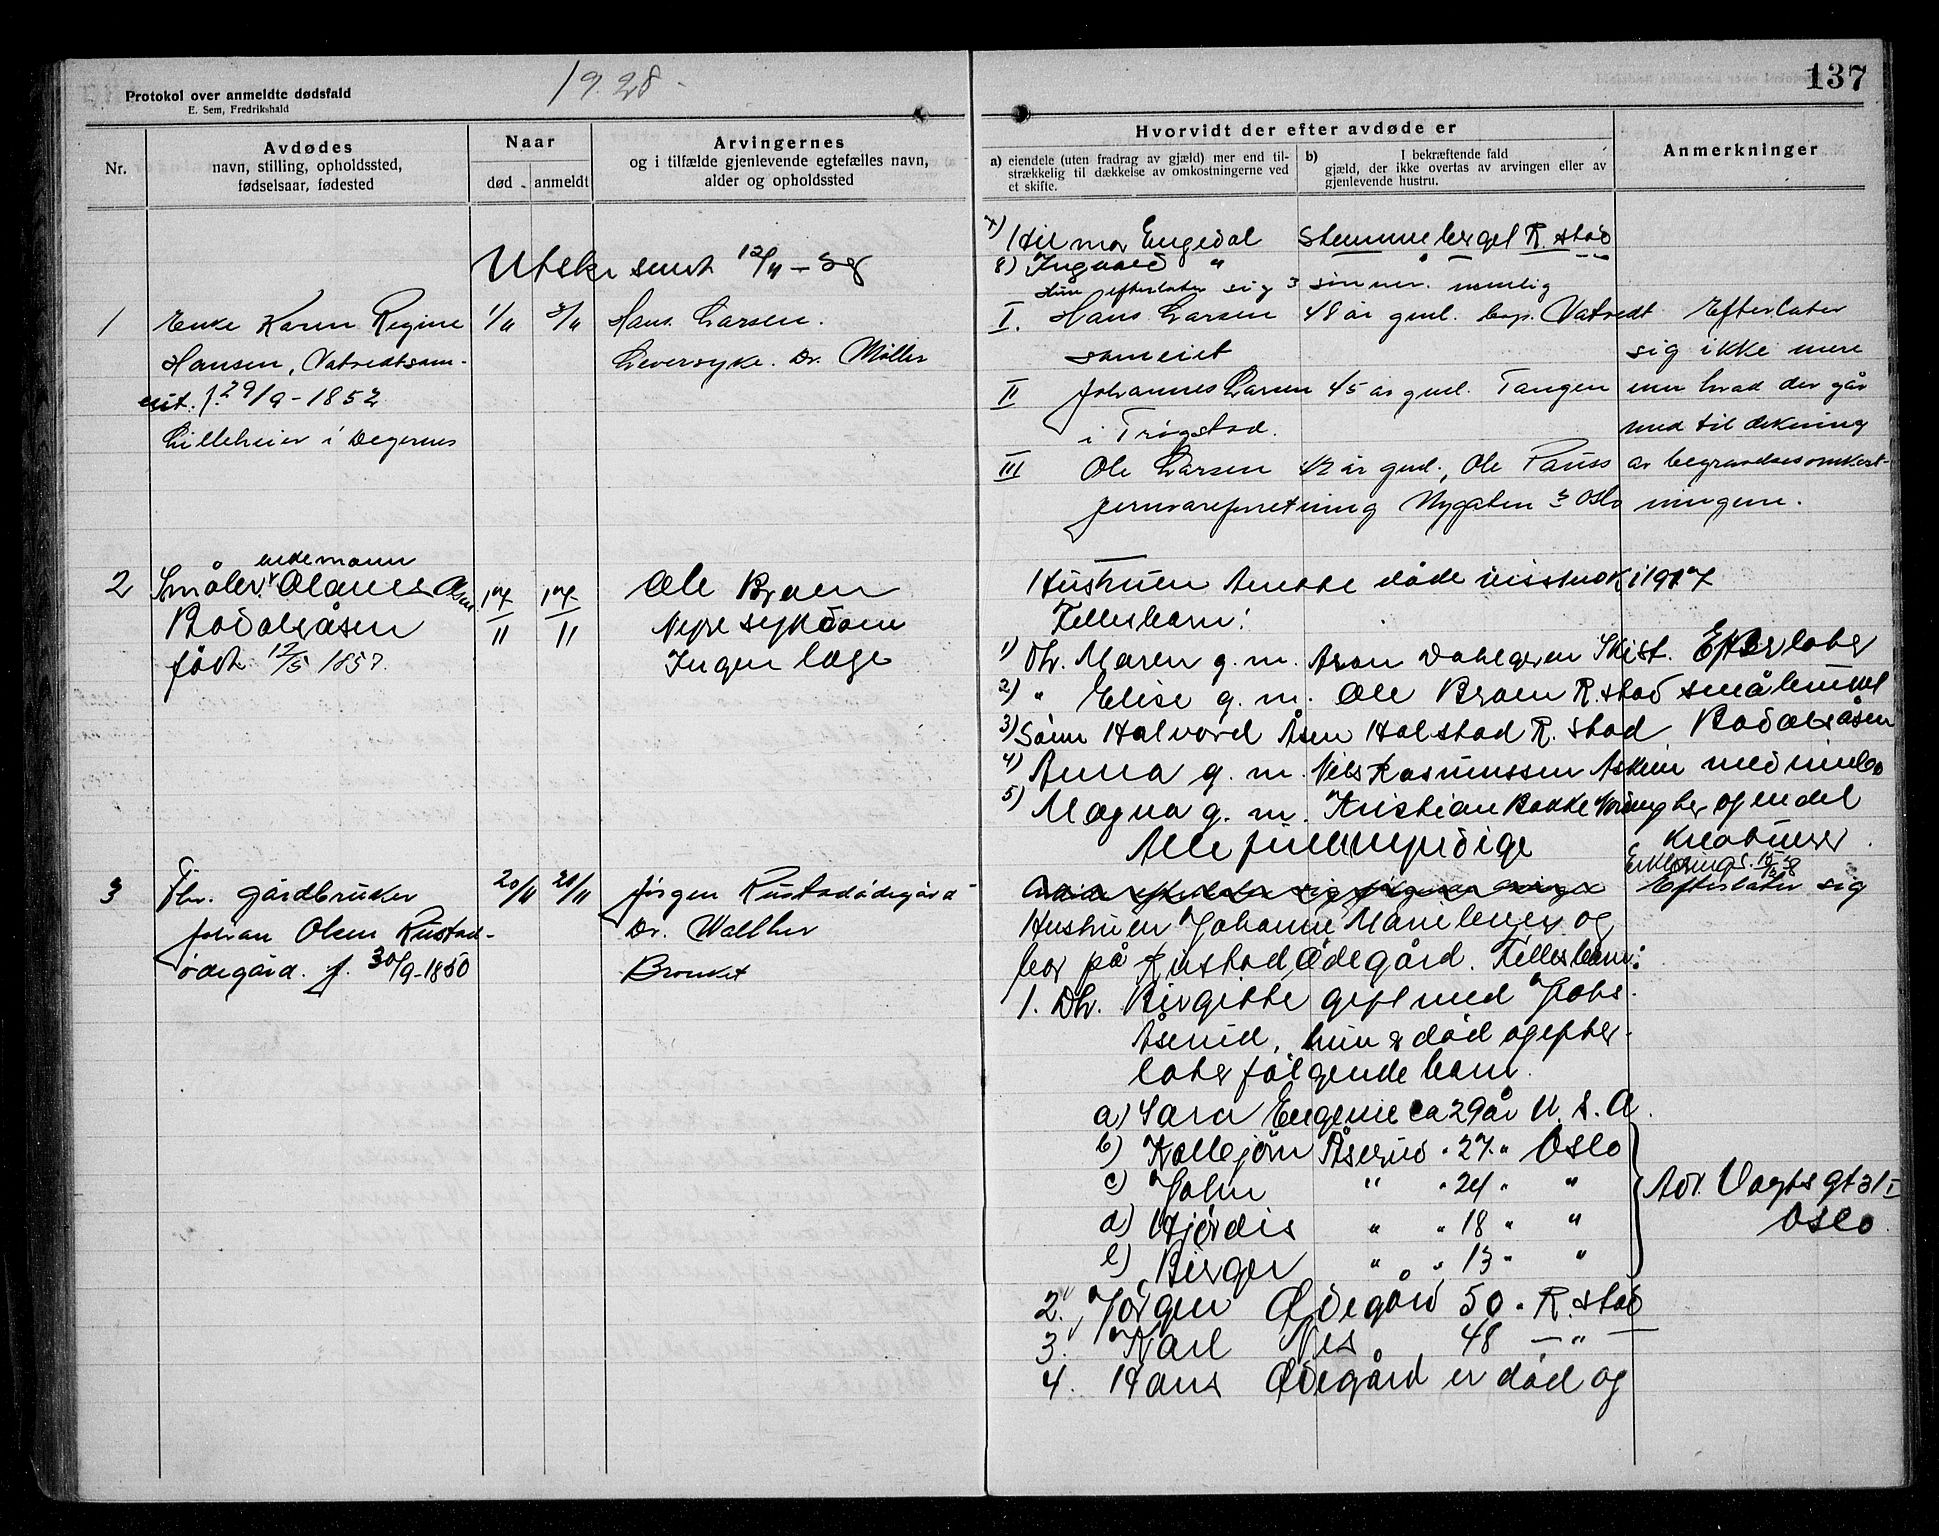 Protokol over anmeldte dødsfald
E. Sem, Fredrikshald
1928
137
Nr.
Avdødes
navn, stilling, opholdssted,
fødselsaar, fødested
Naar
død
anmeldt
Arvingernes
og i tilfælde gjenlevende egtefælles navn,
alder og opholdssted
Hvorvidt der efter avdøde er
a) eiendele (uten fradrag av gjæld) mer end til-
strækkelig til dækkelse av omkostningerne ved
et skifte.
b) I bekræftende fald
gjæld, der ikke overtas av arvingen eller av
gjenlevende hustru.
Anmerkninger
7) Hilmar Engedal Stemmeberget R.stad
8) Ingvald " " — —
Utskr sendt 12/11 - 28
Hun efterlater sig 3 sønner. nemlig
1
Enke Karen Regine
Hansen, Vatvedtsam-
eiet. f. 29/9 - 1852
Lilleheier i Degernes
1/11
3/11
Hans Larsen.
Leversyke. Dr. Møller
I. Hans Larsen 48 år gml. bop. Vatvedt
sameiet
II Johannes Larsen 45 år gml. Tangen
i Trøgstad.
III Ole Larsen 42 år gml., Ole Pauss
jernvareforretning Nygaten 3 Oslo
Efterlater
sig ikke mere
enn hvad der går
med til dekning
av begravelsesomkost-
ningene.
2
Småbr. enkemann Olaus Olsen
Bodalsåsen
født 12/5 1857.
17/11
17/11
Ole Braen
Nyresykdom
Ingen læge
Hustruen Anette døde visstnok i 1917
Fellesbarn:
1) Dtr. Maren g. m. Aron Dahlgren Skist.
2) " Elise g. m. Ole Braen R.stad
3) Sønn Halvord Åsen Halstad R.stad
4) Anna g. m. Nils Rasmussen Askim
5) Magna g. m. Kristian Bakke
Alle fullmyndige
Efterlater
småbruket
Bodalsåsen
med innbo
og endel
kreaturer.
3
Fhv. gårdbruker
Johan Olsen Rustad-
ødegård. f. 30/9-1850
20/11
21/11
Jørgen Rustadødegård
Dr. Walther
Bronket
Hustruen Johanne Marie lever og
bor på Rustad Ødegård. Fellesbarn:
Efterlater sig
1. Dtr. Birgitte gift med Johs.
Åserud, hun er død og efter-
later følgende barn.
a) Sara Eugenie ca 29 år U. S. A.
b) Kallejørn Åserud " 27 " Oslo
c) John " " 24 " "
d) Hjørdis " " 18 " "
e) Birger " " 13 " "
Adr. Vogts gt 31 I
Oslo
2. Jørgen Ødegård 50 " R.stad
3. Karl Nes 48 — " —
4. Hans Ødegård er død og